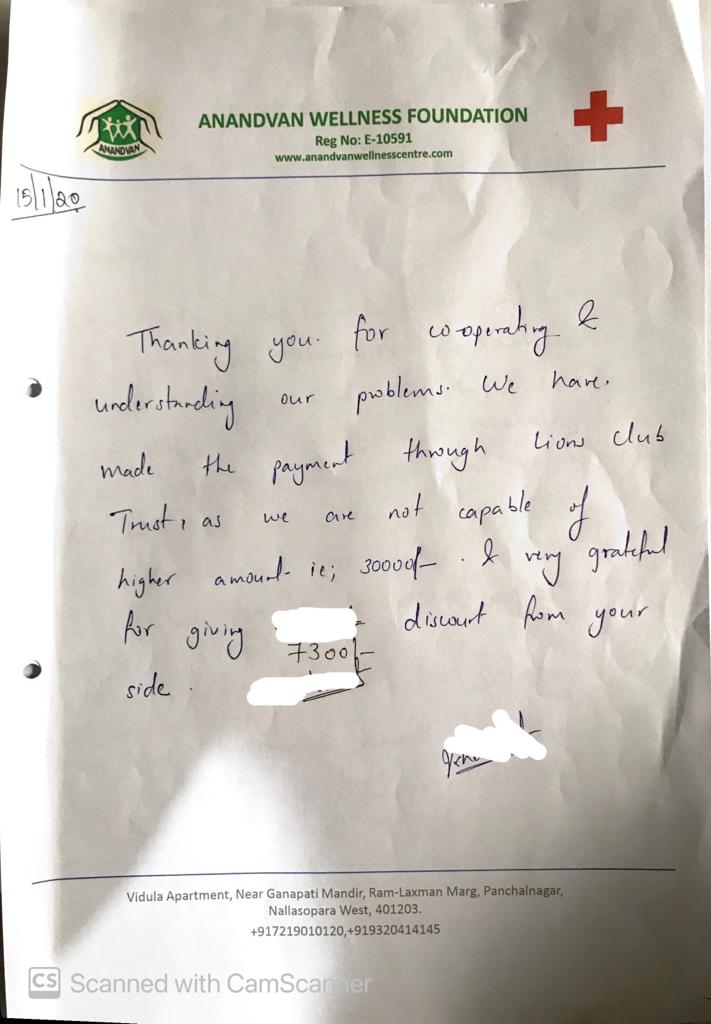 ANANDVAN
ANANDVAN WELLNESS FOUNDATION
Reg No: E-10591
www.anandvanwellnesscentre.com
15/1/20
Thanking you. for co-operating &
understanding our problems. We have.
made the payment through Lions Club
Trust, as we are not capable of
higher amount- ie; 30000/- . & very grateful
for giving discount from your
7300/-
side.
Vidula Apartment, Near Ganapati Mandir, Ram-Laxman Marg, Panchalnagar,
Nallasopara West, 401203.
+917219010120,+919320414145
CS Scanned with CamScanner